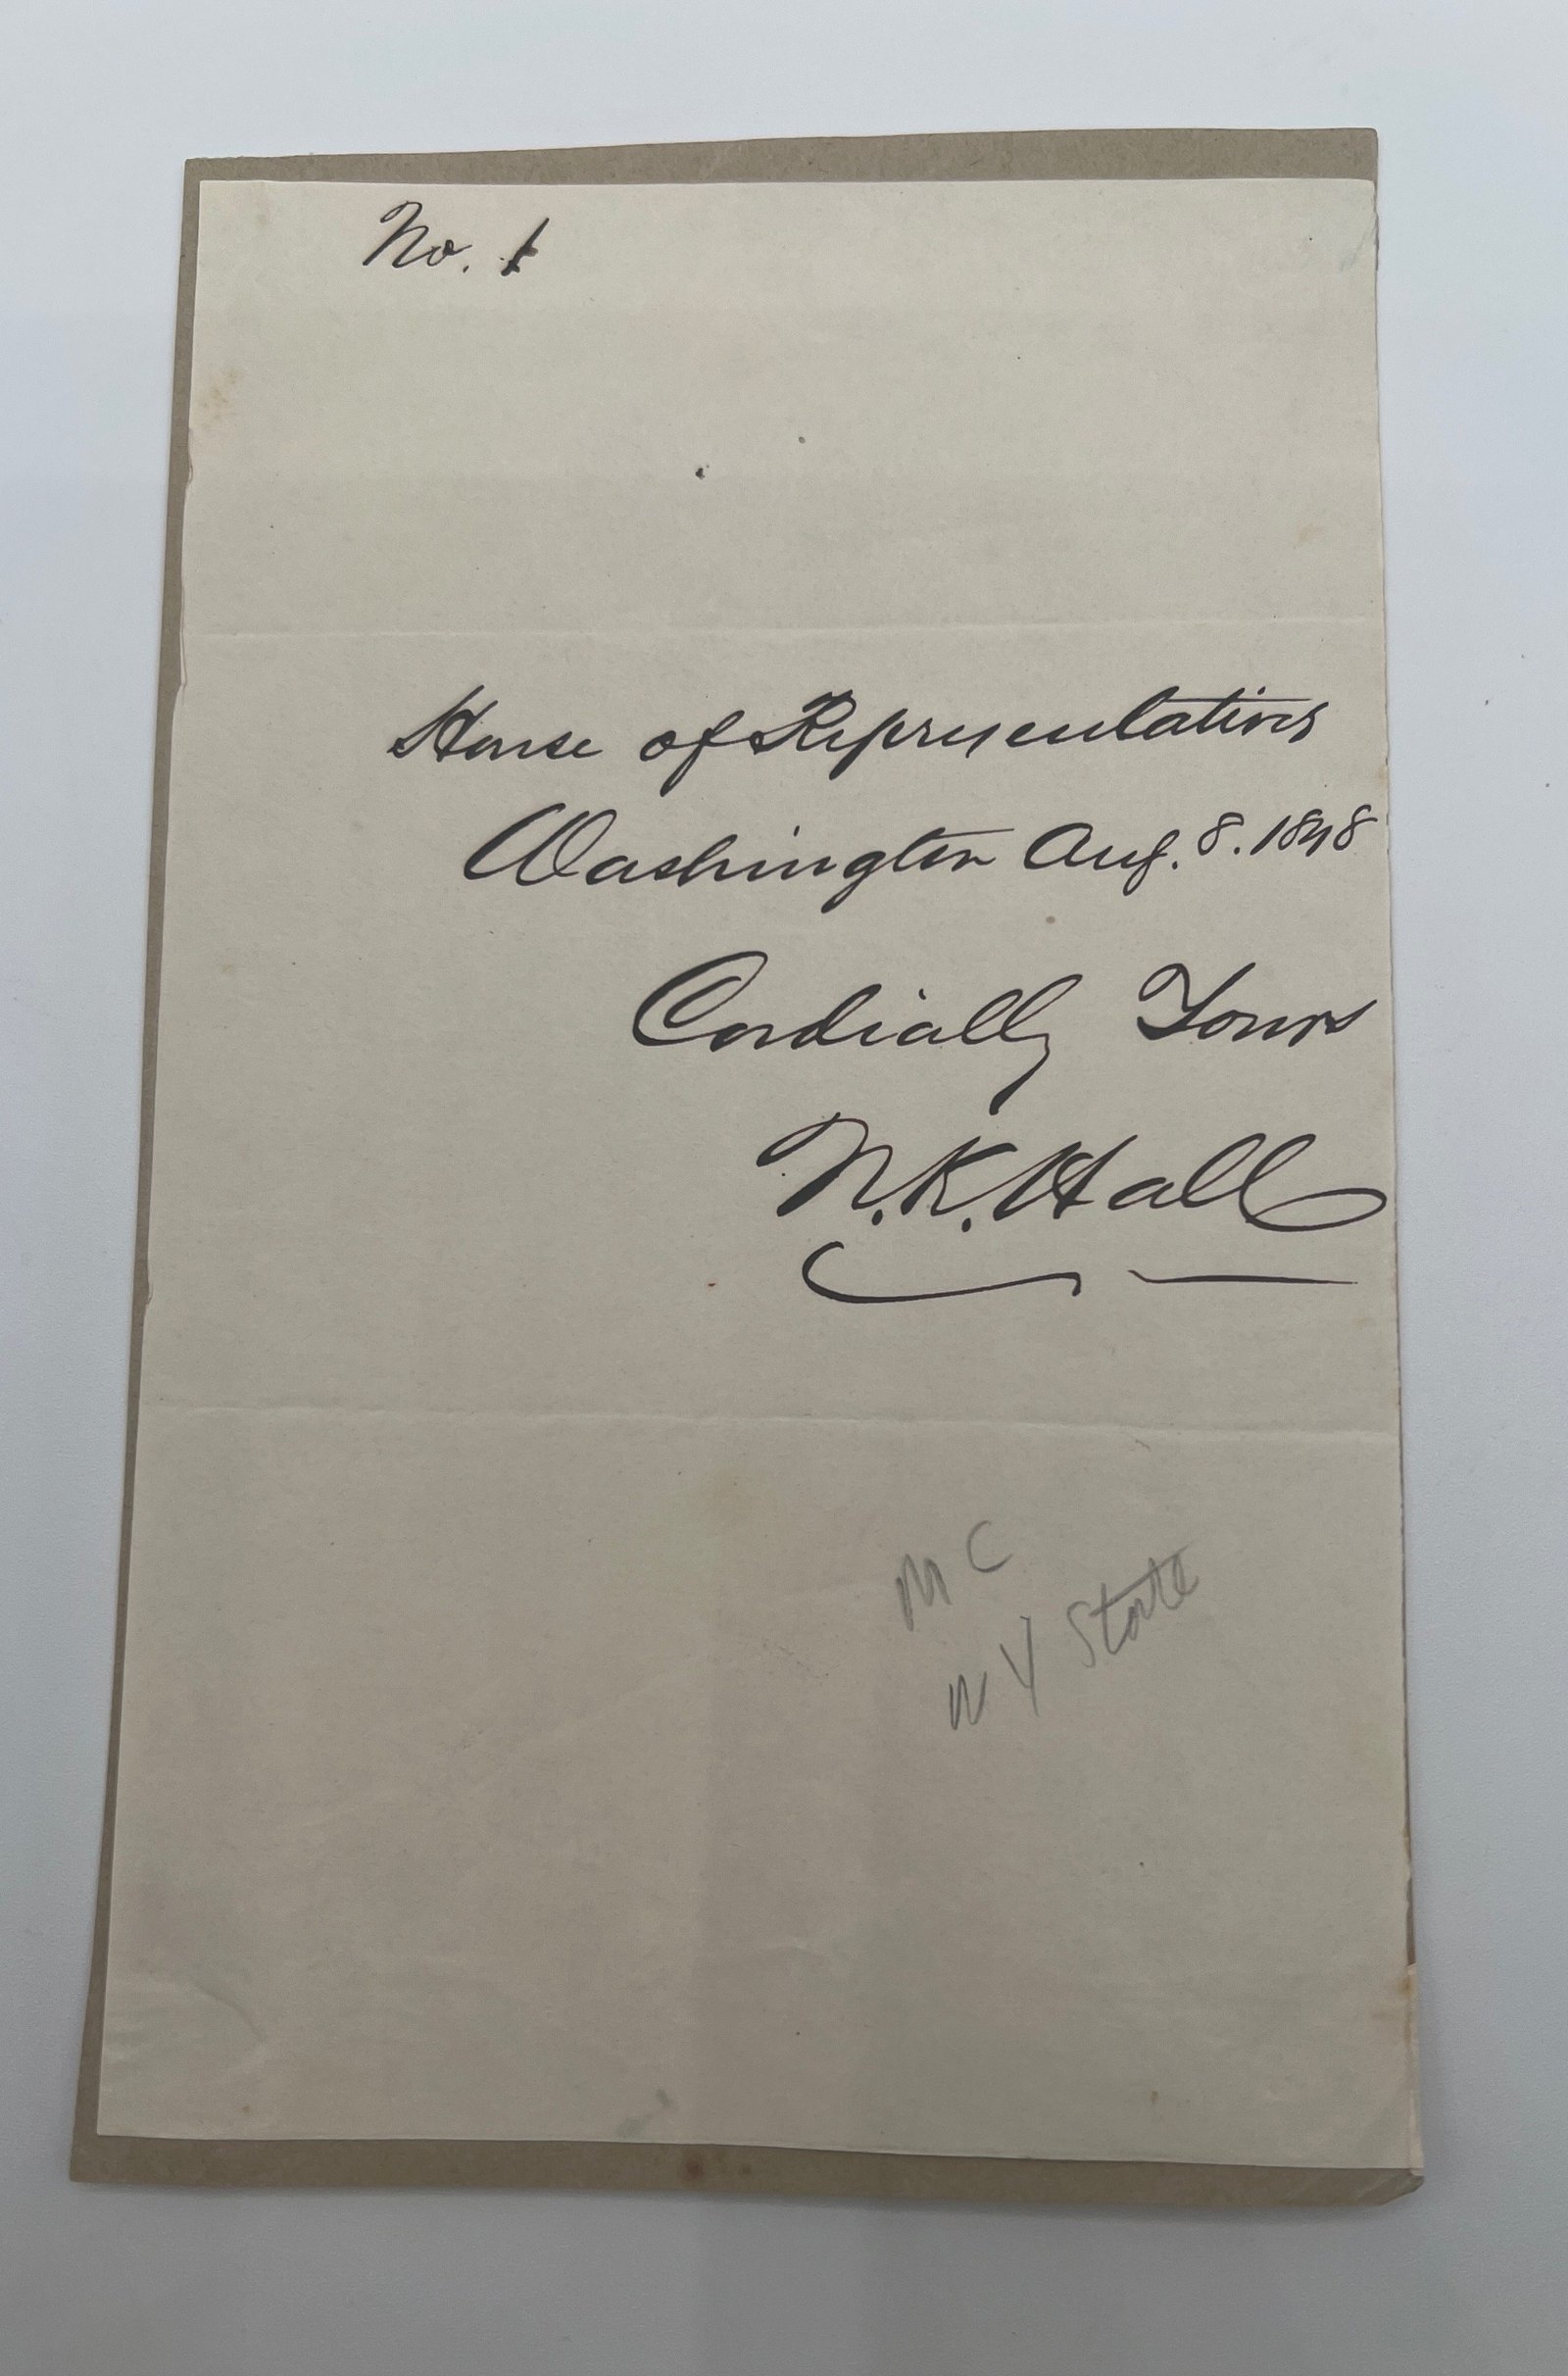 No. 1
House of Representatives
Washington Aug. 8. 1848
Cordially Yours
N. K. Hall
M C
N Y State